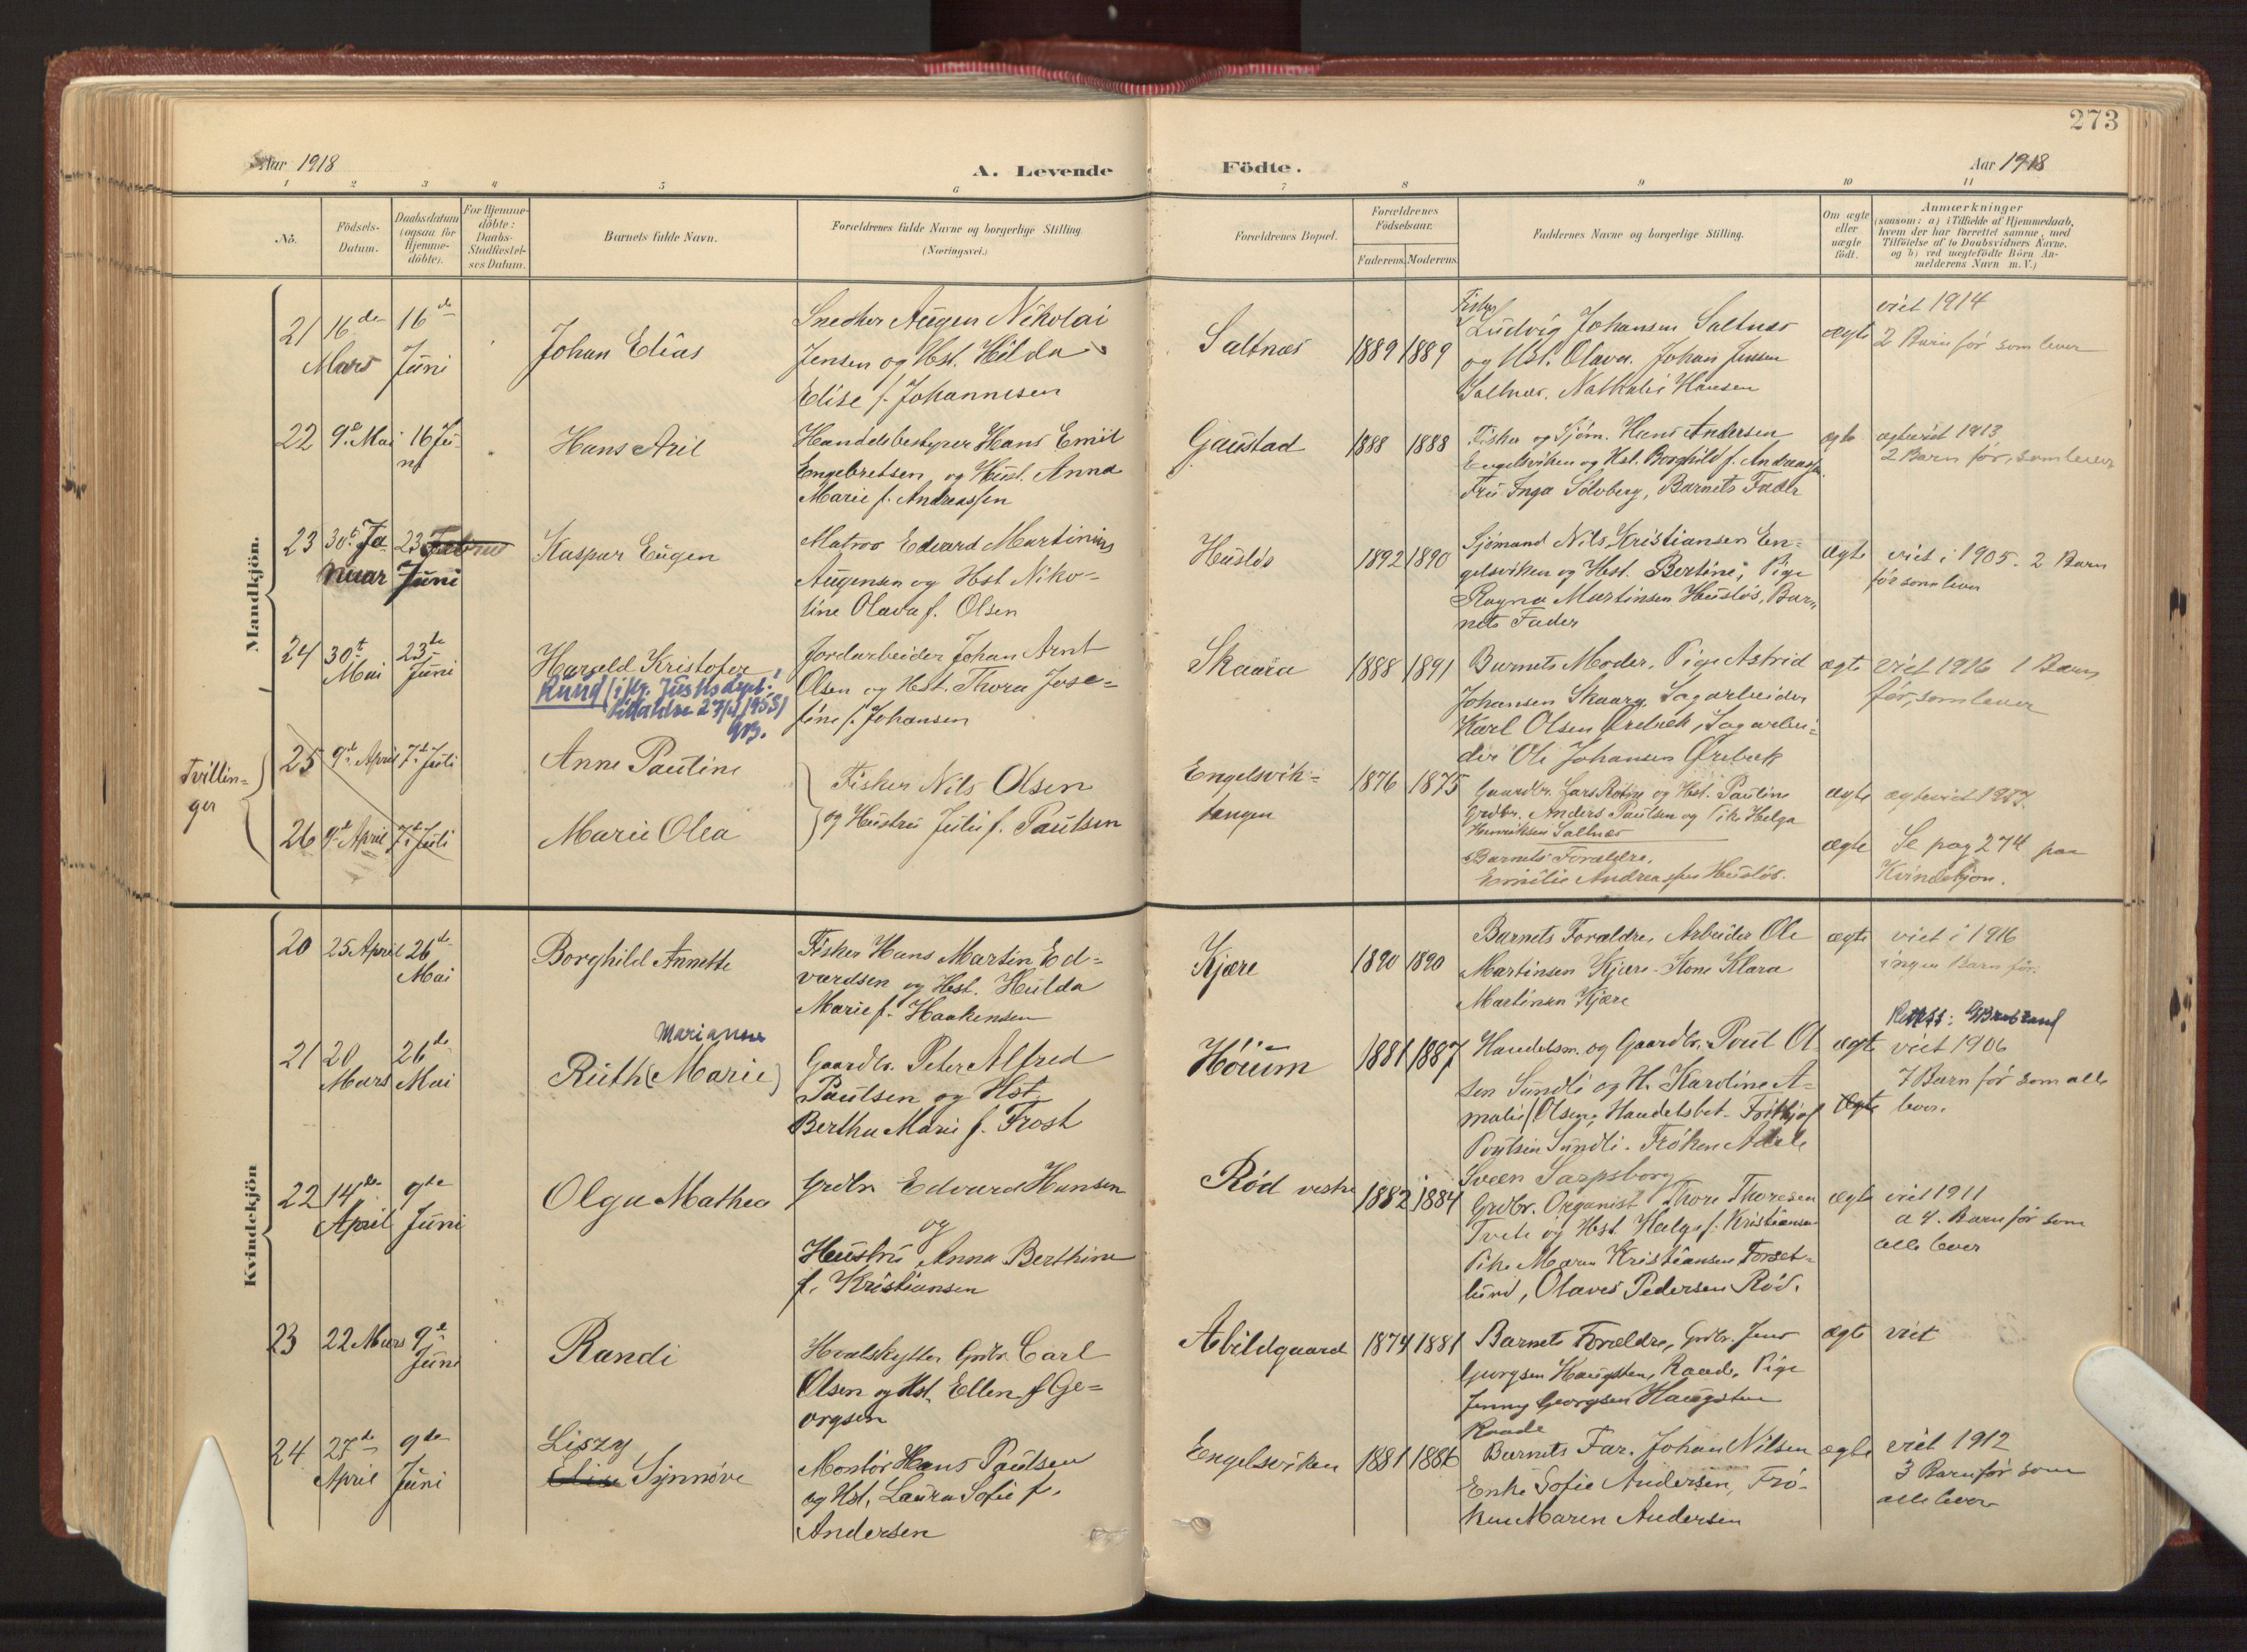 273
Aar 1918
A. Levende
Födte.
Aar 1918
1 2 3 4 5 6 7 8 9 10 11
Nö.
Födsels-
Datum.
Daabsdatum
(ogsaa for
Hjemme-
döbte).
For Hjemme-
döbte:
Daabs-
Stadfæstel-
ses Datum.
Barnets fulde Navn.
Forældrenes fulde Navne og borgerlige Stilling.
(Næringsvei.)
Forældrenes Bopæl.
Forældrenes
Födselsaar.
Faderens. Moderens.
Faddernes Navne og borgerlige Stilling.
Om ægte
eller
uægte
födt.
Anmærkninger
(saasom: a) i Tilfælde af Hjemmedaab,
hvem der har forrettet samme, med
Tilföielse af to Daabsvidners Navne.
og b) ved uægtefödte Börn An-
melderens Navn m. V.)
Mandkjön.
21
16de
Mars
16de
Juni
Johan Elias
Snedker Augen Nikolai
Jensen og Hst. Hilda
Elise f. Johannesen
Saltnæs
1889
1889
Fisker
Ludvig Johansen Saltnæs
og Hst. Olava. Johan Jensen
Saltnæs. Nathalie Hansen
ægte
viet 1914
2 Barn før som lever
22
9de Mai
16 Ju-
ni
Hans Aril
Handelsbestyrer Hans Emil
Engebretsen og Hust. Anna
Marie f. Andreassen
Gaustad
1888
1888
Fisker og Sjøm. Hans Andersen
Engelsviken og Hst. Borghild f. Andreassen
Fru Inga Solvberg, Barnets Fader
ægte
ægteviet 1913
2 Barn før, som lever
23
30t Ja-
nuar
23
Juni
Kaspar Eugen
Matros Edvard Martinius
Augensen og Hst Niko-
line Olava f. Olsen
Husløs
1892
1890
Sjömand Nils Kristiansen En-
gelsviken og Hst. Bertine; Pige
Ragna Martinsen Husløs, Bar-
nets Fader
Ægte
viet i 1905. 2 Barn
før som lever
24
30t
Mai
23de
Juni
Harald Kristofer
Knud (i flg. Justisdept.
27/4 1955)
Jordarbeider Johan Arnt
Olsen og Hst. Thora Jose-
fine f. Johansen
Skaara
1888
1891
Barnets Moder, Pige Astrid
Johansen Skaara, Sagarbeider
Karl Olsen Ørebæk, Sagarbei-
der Ole Johansen Ørebæk
ægte
viet 1916 1 Barn
før, som lever
Tvillin-
ger
25
9de April
7de Juli
Anne Pauline
Fisker Nils Olsen
og Hustru Julie f. Paulsen
Engelsvik-
tangen
1876
1875
Gaardbr. Lars Rstne og Hst. Pauline
Grdbr. Anders Paulsen og Pike Helga
Henriksen Saltnæs
ægte
ægteviet 1907.
26
9de April
7de Juli
Marie Olea
Barnets Forældre,
Emilie Andreassen Husløs.
ægte
Se pag 274 paa
Kvindekjøn.
Kvindekjön
20
25 April
26de
Mai
Borghild Annette
Fisker Hans Martin Ed-
vardsen og Hst. Hulda
Marie f. Haakensen
Kjære
1890
1890
Barnets Forældre, Arbeider Ole
Martinsen Kjære. Kone Klara
Martinsen Kjære
ægte
viet i 1916
ingen Barn før.
21
20
Mars
26de
Mai
Marianne
Ruth (Marie)
Gaardbr. Peter Alfred
Paulsen og Hst.
Bertha Marie f. Frost
Höium
1881
1887
Handelsm. og Gaardbr. Poul Ol-
sen Sundli og H. Karoline A-
malie Olsen, Handelsbet. Frithjof
Poulsen Sundli. Frøken Adele
Sveen Sarpsborg
ægte
Ægte
viet 1906
7 Barn før som alle
lever.
22
14de
April
9de
Juni
Olga Mathea
Grdbr. Edvard Hansen
og
Hustru Anna Berthine
f. Kristiansen
Rød vestre
1882
1884
Grdbr. Organist Thore Thoresen
Tvete og Hst Helga f. Kristiansen
Pike Maren Kristiansen Torset-
lund, Olaves Pedersen Rød.
ægte
viet 1911
a 4. Barn før som
alle lever
23
22 Mars
9de
Juni
Randi
Hvalskytter Grdbr. Carl
Olsen og Hst. Ellen f. Ge-
orgsen
Abildgaard
1874
1881
Barnets Forældre, Grdbr. Jens
Georgsen Haugsten, Raade, Pige
Jenny Georgsen Haugsten
Raade
Ægte
viet
24
27de
April
9de
Juni
Liszy
Elise Synnöve
Montör Hans Paulsen
og Hst. Laura Sofie f.
Andersen
Engelsviken
1881
1886
Barnets Far. Johan Nilsen
Enke Sofie Andersen, Frö-
ken Maren Andersen
ægte
viet 1912
3 Barn før som
alle lever